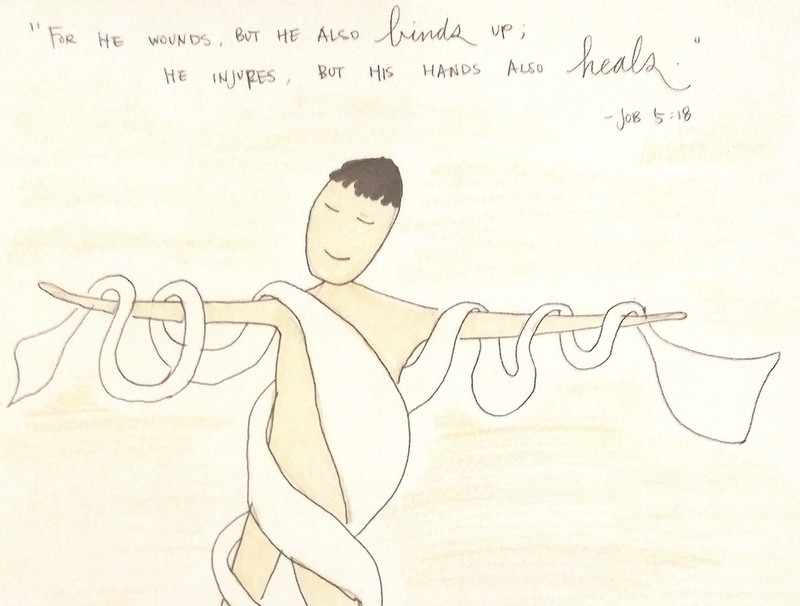 "FOR HE WOUNDS, BUT HE ALSO binds UP;
HE INJURES, BUT HIS HANDS ALSO heals."
-JOB 5:18